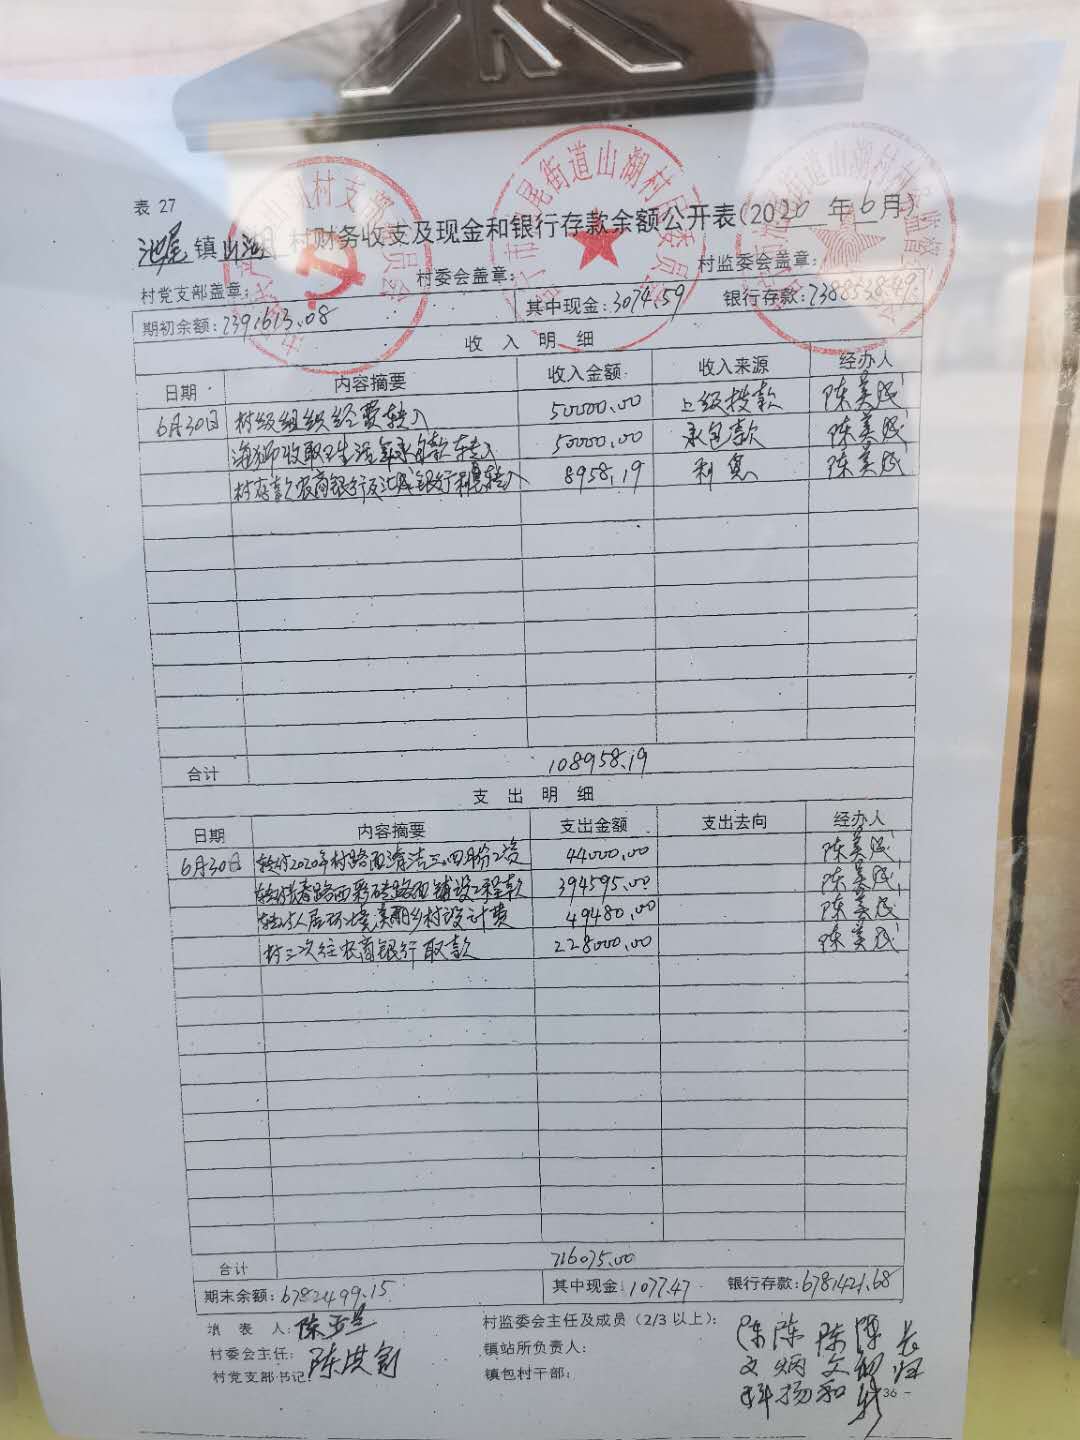 表 27
池尾镇山湖村财务收支及现金和银行存款余额公开表(2020年6月)
村党支部盖章: 村委会盖章: 村监委会盖章:
期初余额:7391613.08 其中现金:3074.59 银行存款:7388538.49
收入明细
日期 内容摘要 收入金额 收入来源 经办人
6月30日 村级组织经费转入 50000.00 上级拨款 陈美成
收取卫生活 承包款转入 50000.00 承包款 陈美成
村存款农商银行及 银行利息转入 8958.19 利息 陈美成
合计 108958.19
支出明细
日期 内容摘要 支出金额 支出去向 经办人
6月30日 转付2020年村路面清洁三、四月份工资 44000.00 陈美成
转付 路面彩砖 铺设工程款 394595.00 陈美成
转付人居环境美丽乡村设计费 49480.00 陈美成
村三次往农商银行取款 228000.00 陈美成
合计 716075.00
期末余额:6782499.15 其中现金:1077.47 银行存款:6781421.68
填表人:陈亚兰 村监委会主任及成员(2/3以上):
村委会主任: 镇站所负责人:
村党支部书记: 陈洪 镇包村干部:
陈文 陈炳扬 陈文和 陈
36 -